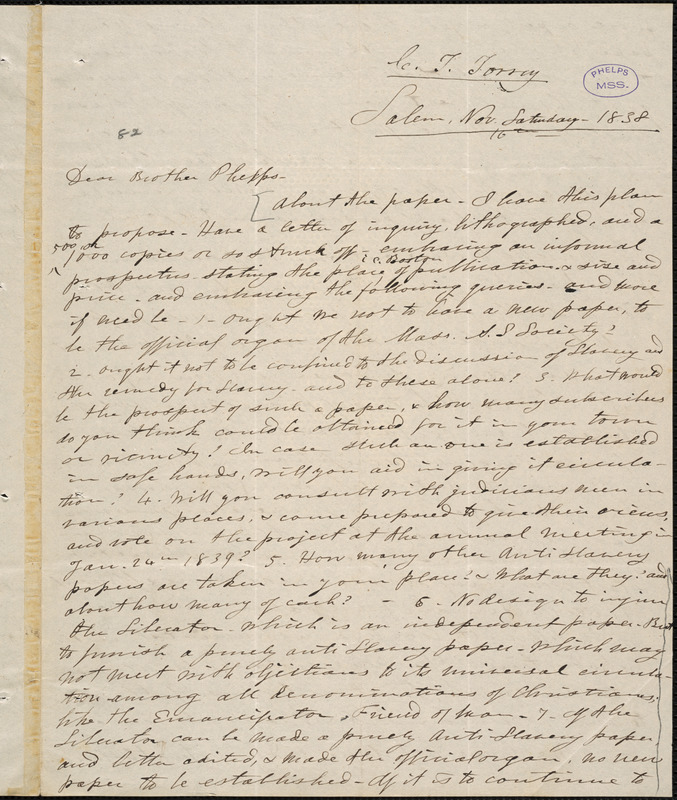 C. T. Torrey
PHELPS
MSS.
Salem, Nov. Saturday - 1838
82
Dear Brother Phepps -
About the paper - I have this plan
to propose - Have a letter of inquiry, lithographed, and a
500, or
1000 copies or so struck off - embracing an informal
i.e. Boston
prospectus, stating the place of publication, & size and
price - and embracing the following queries - and more
if need be - 1 - ought we not to have a new paper, to
be the official organ of the Mass. A. S Society?
2. ought it not to be confined to the discussion of Slavery and
the remedy for slavery - and to these alone? 3. What would
be the prospect of such a paper, & how many subscribers
do you think could be obtained for it in your town
or vicinity? In case such an one is established
in safe hands, will you aid in giving it circula-
tion? 4. Will you consult with judicious men in
various places, & come prepared to give their views,
and vote on the project at the annual meeting in
Jan. 24th 1839? 5. How many other Anti Slavery
papers are taken in your place? & what are they? and
about how many of each? - 6. No design to injure
the Liberator - which is an independent paper - But
to furnish a purely anti Slavery paper - which may
not meet with objections to its universal circula-
tion among all denominations of Christians,
like the Emancipator & Friend of Man - 7 - If the
Liberator can be made a purely Anti-Slavery paper
and better edited, & made the official organ, no new
paper to be established - If it is to continue to